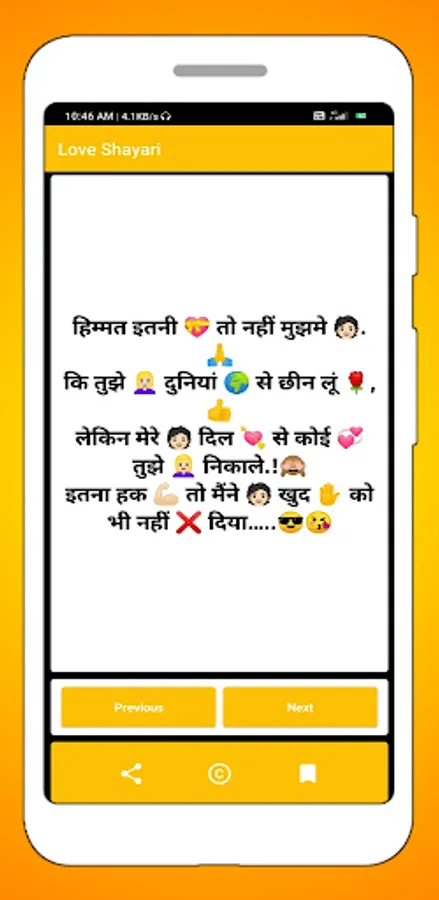 10:46 AM | 4.1KB/s
Love Shayari
हिम्मत इतनी 💝 तो नहीं मुझमे 🧑🏻.
🙏
कि तुझे 👱🏼‍♀️ दुनियां 🌍 से छीन लूं 🌹,
👍
लेकिन मेरे 🧑🏻 दिल 💘 से कोई 💞
तुझे 👱🏼‍♀️ निकाले.!🙈
इतना हक 💪🏻 तो मैंने 🧑🏻 खुद ✋ को
भी नहीं ❌ दिया.....😎😘
Previous
Next